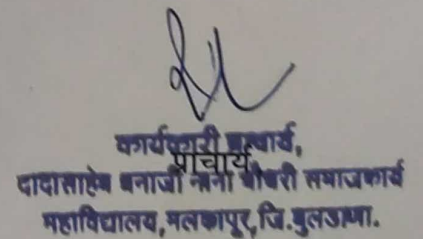 कार्यकारी प्राचार्य,
प्राचार्य
दादासाहेब धनाजी नाना चौधरी समाजकार्य
महाविद्यालय, मलकापुर, जि.बुलडाणा.